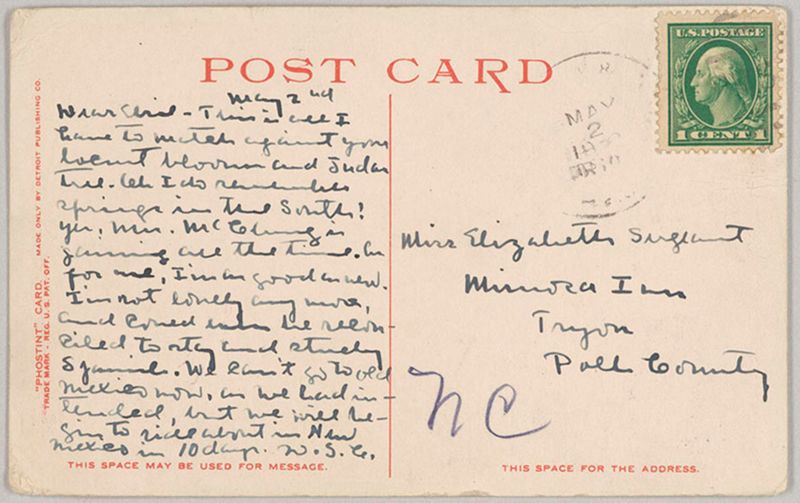 POST CARD
U.S. POSTAGE
1 CENT 1
MAY
2
May 2nd
Dear Elsie - This is all I
have to match against your
locust blooms and Judas
tree. Oh I do remember
springs in the South!
Yes, Mrs. McClung is
gaining all the time. As
for me, I'm as good as new.
I'm not lonely any more,
and could even be recon-
ciled to stay and study
Spanish. We can't go to old
Mexico now, as we had in-
tended, but we will be-
gin to ride about in New
Mexico in 10 days. W. S. C.
Miss Elizabeth Sergeant
Mimosa Inn
Tryon
Polk County
NC
"PHOSTINT" CARD. MADE ONLY BY DETROIT PUBLISHING CO.
"TRADE MARK - REG. U.S. PAT. OFF.
THIS SPACE MAY BE USED FOR MESSAGE.
THIS SPACE FOR THE ADDRESS.